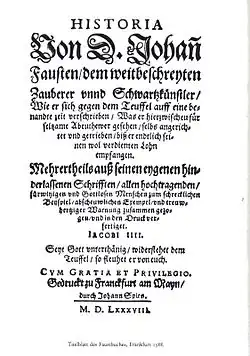 HISTORIA
Von D. Johañ
Fausten/dem weitbeschreyten
Zauberer vnnd Schwartzkünstler/
Wie er sich gegen dem Teuffel auff eine be-
nandte zeit verschrieben/Was er hierzwischen für
seltzame Abentheuwer gesehen/selbs angerich-
tet vnd getrieben/biß er endtlich sei-
nen wol verdienten Lohn
empfangen.
Mehrertheils auß seinen eygenen hin-
derlassenen Schrifften/allen hochtragenden/
fürwitzigen vnd Gottlosen Menschen zum schrecklichen
Beyspiel/abschewlichen Exempel/vnd treuw-
hertziger Warnung zusammen gezo-
gen/vnd in den Druck ver-
fertiget.
IACOBI IIII.
Seyt Gott vnterthänig/widerstehet dem
Teuffel/so fleuhet er von euch.
CVM GRATIA ET PRIVILEGIO.
Gedruckt zu Franckfurt am Mayn/
durch Johann Spies.
M. D. LXXXVIII.
Titelblatt des Faustbuches, Frankfurt 1588.